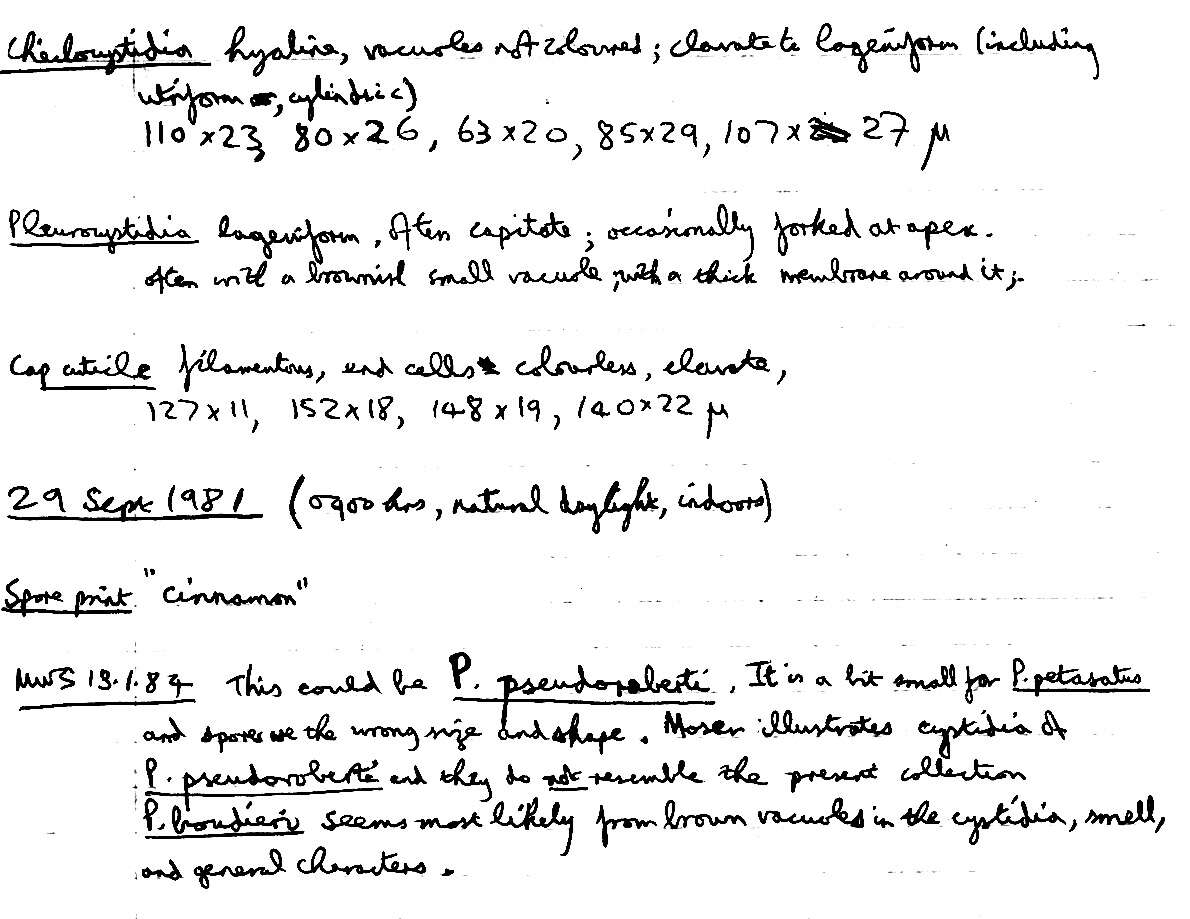 Cheilocystidia hyaline, vacuoles not coloured; clavate to lageniform (including
utriform, cylindric)
110 x 23, 80 x 26, 63 x 20, 85 x 29, 107 x 27 μ
Pleurocystidia lageniform, often capitate; occasionally forked at apex.
often with a brownish small vacuole, with a thick membrane around it;
Cap cuticle filamentous, end cells colourless, clavate,
127 x 11, 152 x 18, 148 x 19, 140 x 22 μ
29 Sept 1981 (0900 hrs, natural daylight, indoors)
Spore print "cinnamon"
MWS 13.1.84 This could be P. pseudoroberti. It is a bit small for P. petasatus
and spores are the wrong size and shape. Moser illustrates cystidia of
P. pseudoroberti and they do not resemble the present collection
P. boudieri seems most likely from brown vacuoles in the cystidia, smell,
and general characters.